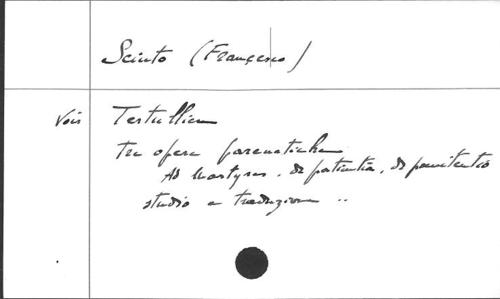 Sciuto (Francesco)
Voir Tertullien
Tre opere parenetiche
Ad Martyras. De patientia, de paenitentia
studio e traduzione ..